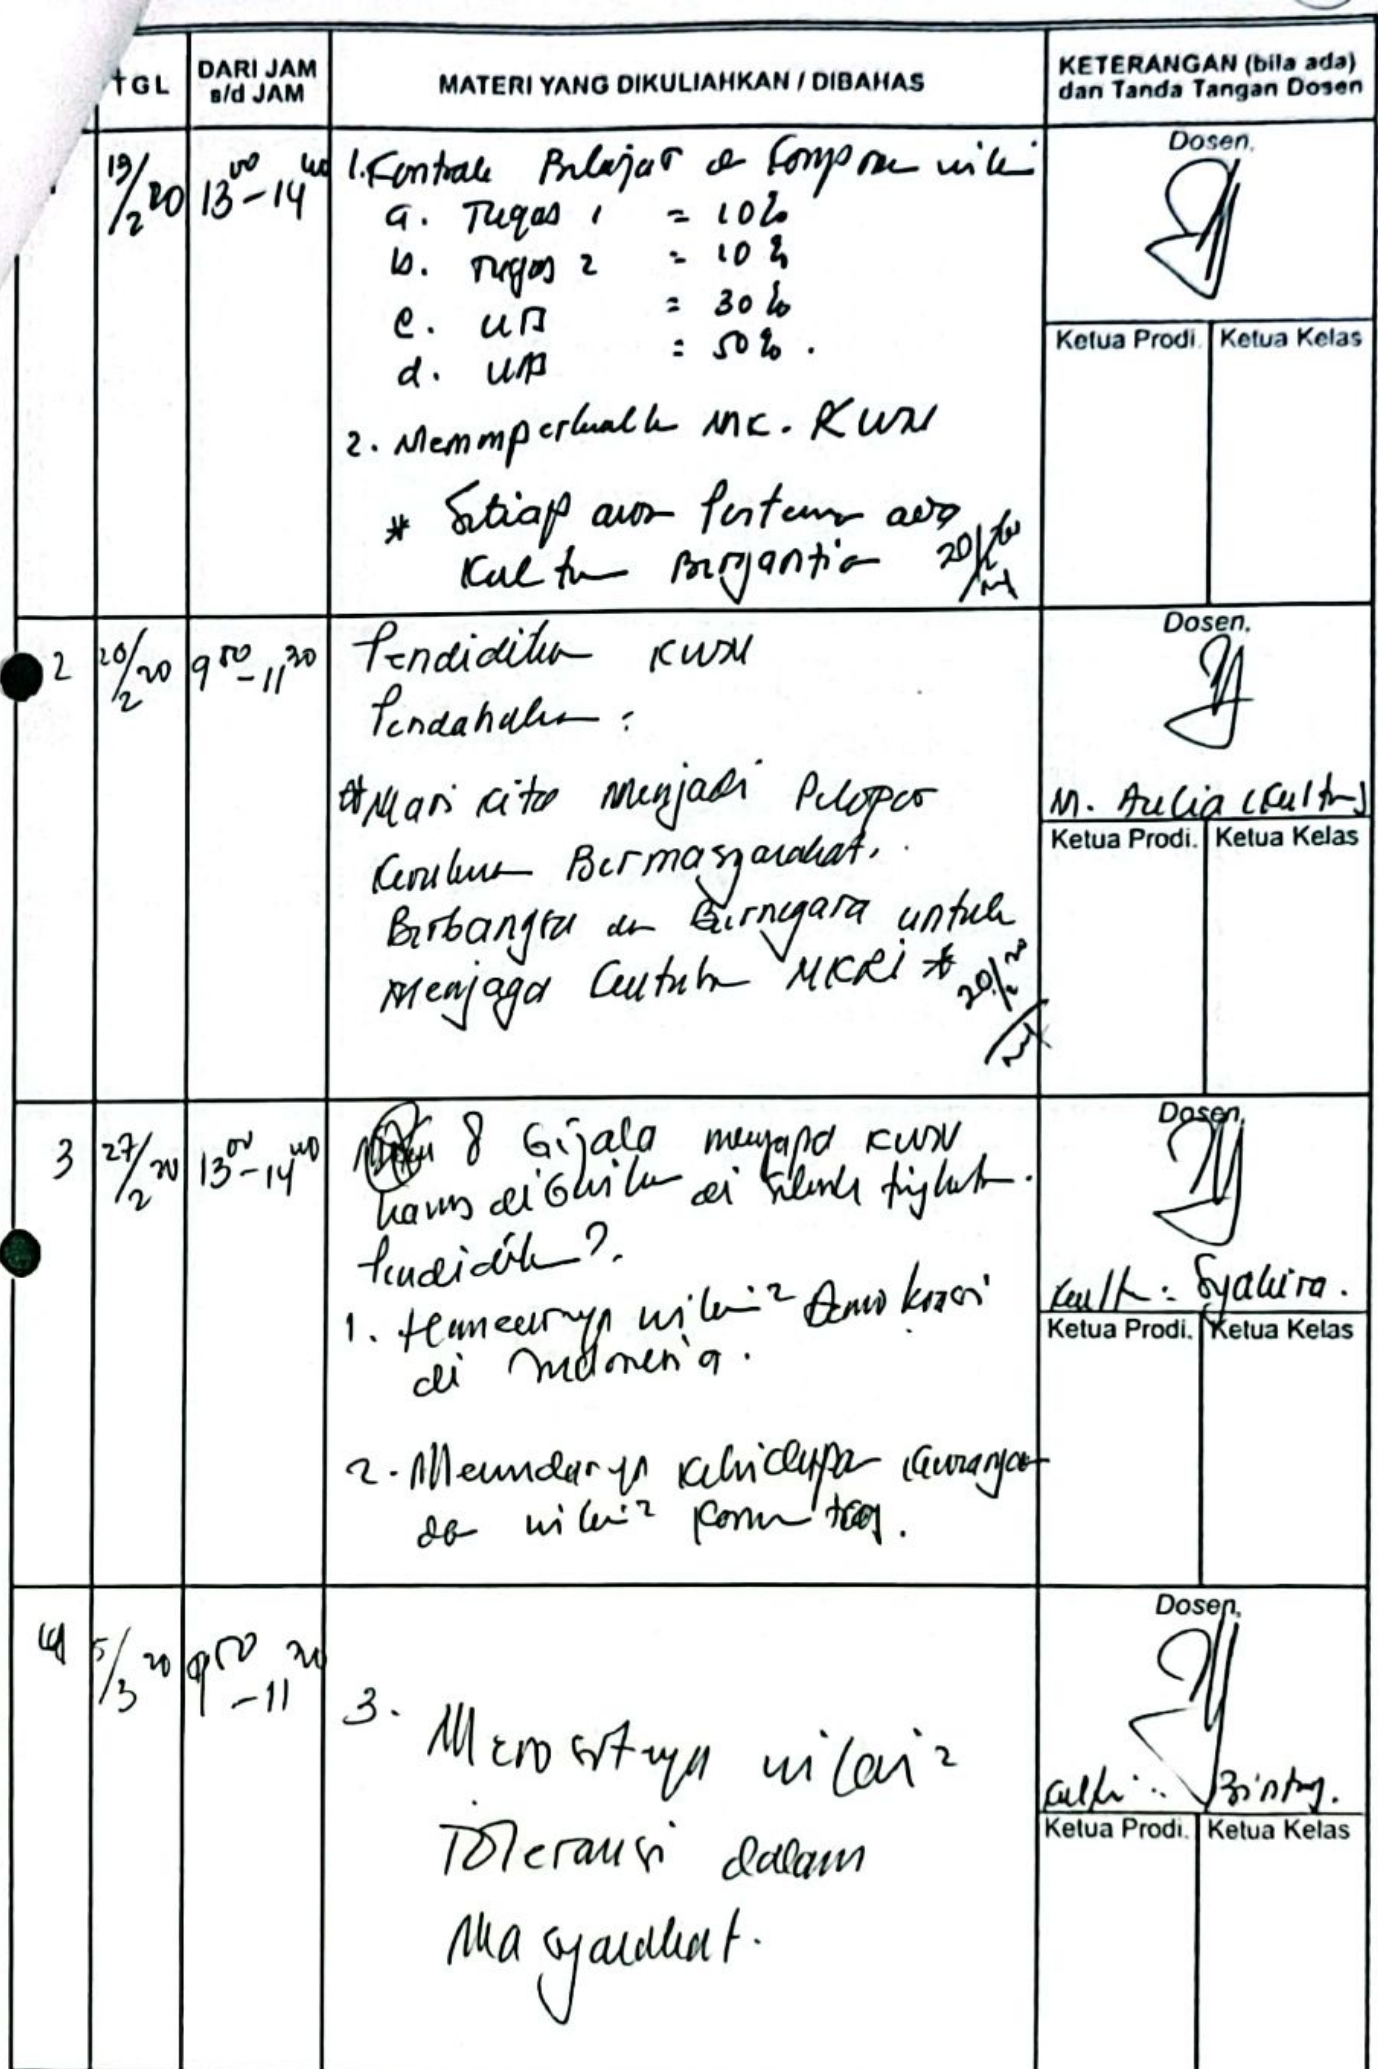 TGL
DARI JAM s/d JAM
MATERI YANG DIKULIAHKAN / DIBAHAS
KETERANGAN (bila ada) dan Tanda Tangan Dosen
19/2 20
13 00 - 14 40
1. Kontrak Belajar
a. Tugas 1 = 10%
b. Tugas 2 = 10%
c. = 30%
d. = 50%.
2. MK. KWN
* Setiap
Kultum
20/2
Dosen,
Ketua Prodi.
Ketua Kelas
2
20/2 20
9 50 - 11 30
Pendidikan KWN
Pendahuluan :
* Mari kita menjadi Pelopor
Bermasyarakat,
Berbangsa dan Bernegara untuk
Menjaga NKRI *
20/2
Dosen,
M. Aulia (Kultum)
Ketua Prodi.
Ketua Kelas
3
27/2 20
13 00 - 14 40
8 Gejala mengapa KWN
harus di di tingkatan
Pendidikan?
1. nilai2 Demokrasi
di Indonesia.
2. kehidupan
nilai2
Dosen,
Kultum : Syahira.
Ketua Prodi.
Ketua Kelas
4
5/3 20
9 50 - 11 30
3. Merosotnya nilai2
Toleransi dalam
Masyarakat.
Dosen,
Kultum : Bintang.
Ketua Prodi.
Ketua Kelas